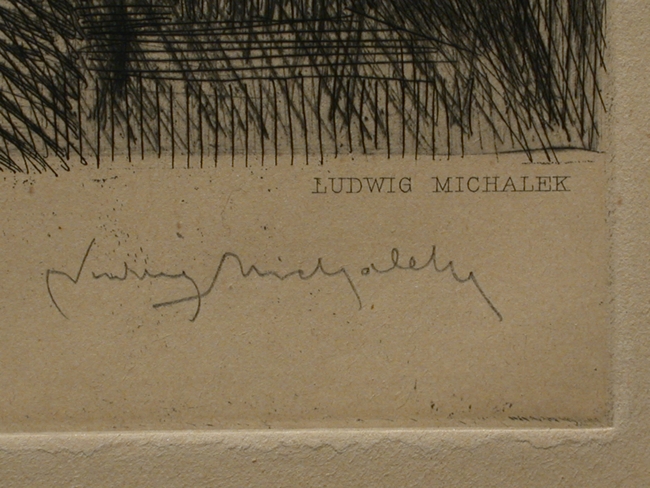 LUDWIG MICHALEK
Ludwig Michalek